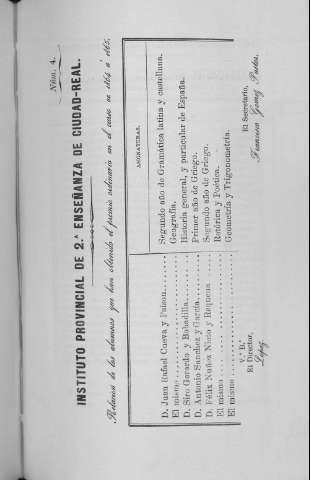 Núm. 4.
INSTITUTO PROVINCIAL DE 2.ª ENSEÑANZA DE CIUDAD-REAL.
Relacion de los alumnos que han obtenido el premio ordinario en el curso de 1864 á 1865.
ASIGNATURAS.
D. Juan Rafael Cueva y Palson Segundo año de Gramática latina y castellana.
El mismo Geografía.
D. Siro Gerardo y Bobadilla Historia general, y particular de España.
D. Antonio Sanchez y García Primer año de Griego.
D. Félix Nuñez Nieto y Requena Segundo año de Griego.
El mismo Retórica y Poética.
El mismo Geometría y Trigonometría.
V.º B.º
El Director,
Lopez.
El Secretario,
Francisco Gomez